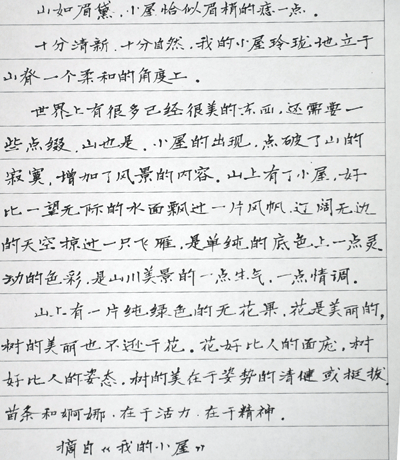 山如眉黛,小屋恰似眉梢的痣一点。
十分清新,十分自然,我的小屋玲珑地立于
山脊一个柔和的角度上。
世界上有很多已经很美的东西,还需要一
些点缀,山也是。小屋的出现,点破了山的
寂寞,增加了风景的内容。山上有了小屋,好
比一望无际的水面飘过一片风帆,辽阔无边
的天空掠过一只飞雁,是单纯的底色上一点灵
动的色彩,是山川美景的一点生气,一点情调。
山上有一片纯绿色的无花果,花是美丽的,
树的美丽也不逊于花。花好比人的面庞,树
好比人的姿态。树的美在于姿势的清健或挺拔
苗条和婀娜,在于活力,在于精神。
摘自《我的小屋》